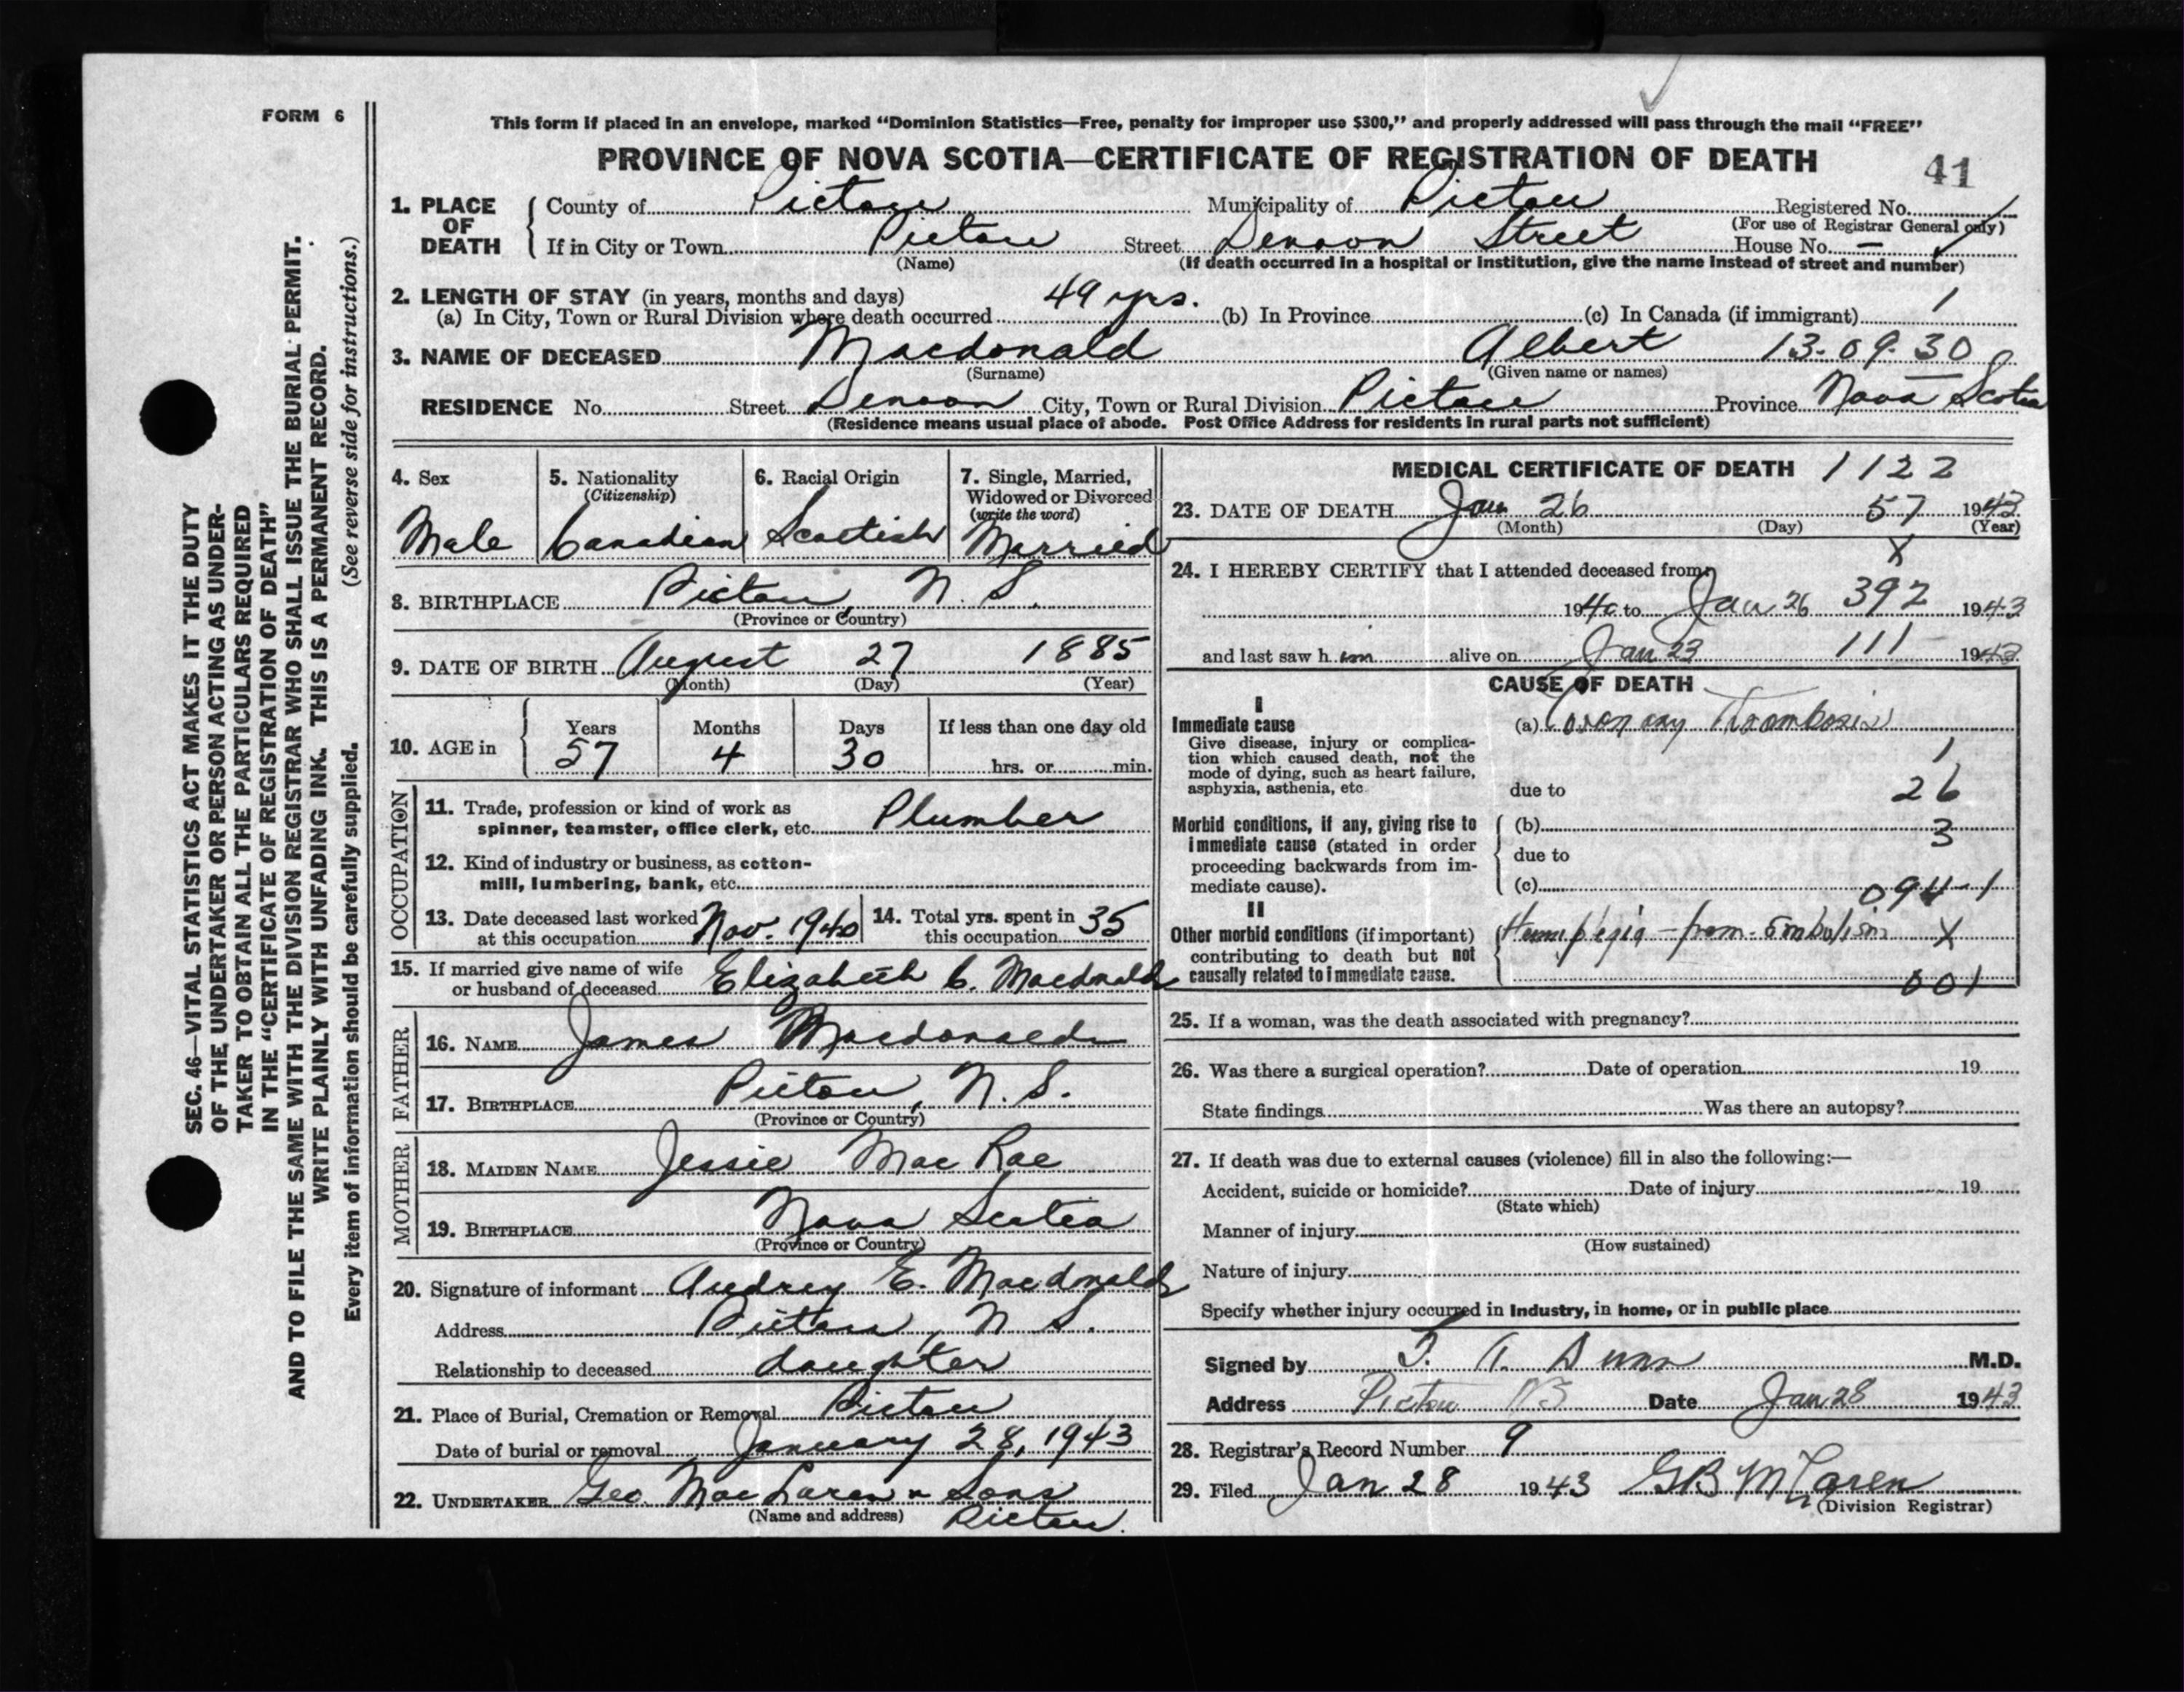 FORM 6
This form if placed in an envelope, marked “Dominion Statistics—Free, penalty for improper use $300,” and properly addressed will pass through the mail “FREE”
PROVINCE OF NOVA SCOTIA—CERTIFICATE OF REGISTRATION OF DEATH 41
1. PLACE OF DEATH County of Pictou Municipality of Pictou Registered No.
(For use of Registrar General only)
If in City or Town Pictou Street Denoon Street House No. —
(Name) (If death occurred in a hospital or institution, give the name instead of street and number)
2. LENGTH OF STAY (in years, months and days)
(a) In City, Town or Rural Division where death occurred 49 yrs. (b) In Province (c) In Canada (if immigrant) 1
3. NAME OF DECEASED Macdonald Albert 13-09-30
(Surname) (Given name or names)
RESIDENCE No. Street Denoon City, Town or Rural Division Pictou Province Nova Scotia
(Residence means usual place of abode. Post Office Address for residents in rural parts not sufficient)
4. Sex Male
5. Nationality (Citizenship) Canadian
6. Racial Origin Scottish
7. Single, Married, Widowed or Divorced (write the word) Married
8. BIRTHPLACE Pictou, N. S.
(Province or Country)
9. DATE OF BIRTH August 27 1885
(Month) (Day) (Year)
10. AGE in Years 57 Months 4 Days 30 If less than one day old hrs. or min.
OCCUPATION
11. Trade, profession or kind of work as
spinner, teamster, office clerk, etc. Plumber
12. Kind of industry or business, as cotton-
mill, lumbering, bank, etc.
13. Date deceased last worked at this occupation Nov. 1940
14. Total yrs. spent in this occupation 35
15. If married give name of wife
or husband of deceased Elizabeth C. Macdonald
FATHER
16. NAME James Macdonald
17. BIRTHPLACE Pictou, N. S.
(Province or Country)
MOTHER
18. MAIDEN NAME Jessie Mac Rae
19. BIRTHPLACE Nova Scotia
(Province or Country)
20. Signature of informant Audrey E. Macdonald
Address Pictou, N S.
Relationship to deceased daughter
21. Place of Burial, Cremation or Removal Pictou
Date of burial or removal January 28, 1943
22. UNDERTAKER Geo. MacLaren & Sons
(Name and address) Pictou.
MEDICAL CERTIFICATE OF DEATH 1122
23. DATE OF DEATH Jan 26 57 1943
(Month) (Day) (Year)
X
24. I HEREBY CERTIFY that I attended deceased from
1940 to Jan 26 392 1943
and last saw h im alive on Jan 23 111 1943
CAUSE OF DEATH
I
Immediate cause (a) Coronary Thrombosis
Give disease, injury or complica-
tion which caused death, not the
mode of dying, such as heart failure,
asphyxia, asthenia, etc.
1
due to 26
Morbid conditions, if any, giving rise to
immediate cause (stated in order
proceeding backwards from im-
mediate cause).
(b) 3
due to
(c) 094-1
II
Other morbid conditions (if important)
contributing to death but not
causally related to immediate cause.
Hemiplegia - from - Embolism X
001
25. If a woman, was the death associated with pregnancy?
26. Was there a surgical operation? Date of operation 19
State findings Was there an autopsy?
27. If death was due to external causes (violence) fill in also the following:—
Accident, suicide or homicide? Date of injury 19
(State which)
Manner of injury
(How sustained)
Nature of injury
Specify whether injury occurred in Industry, in home, or in public place
Signed by T. A. Dunn M.D.
Address Pictou NS Date Jan 28 1943
28. Registrar's Record Number 9
29. Filed Jan 28 1943 GB McLaren
(Division Registrar)
SEC. 46—VITAL STATISTICS ACT MAKES IT THE DUTY
OF THE UNDERTAKER OR PERSON ACTING AS UNDER-
TAKER TO OBTAIN ALL THE PARTICULARS REQUIRED
IN THE “CERTIFICATE OF REGISTRATION OF DEATH”
AND TO FILE THE SAME WITH THE DIVISION REGISTRAR WHO SHALL ISSUE THE BURIAL PERMIT.
WRITE PLAINLY WITH UNFADING INK. THIS IS A PERMANENT RECORD.
Every item of information should be carefully supplied. (See reverse side for instructions.)